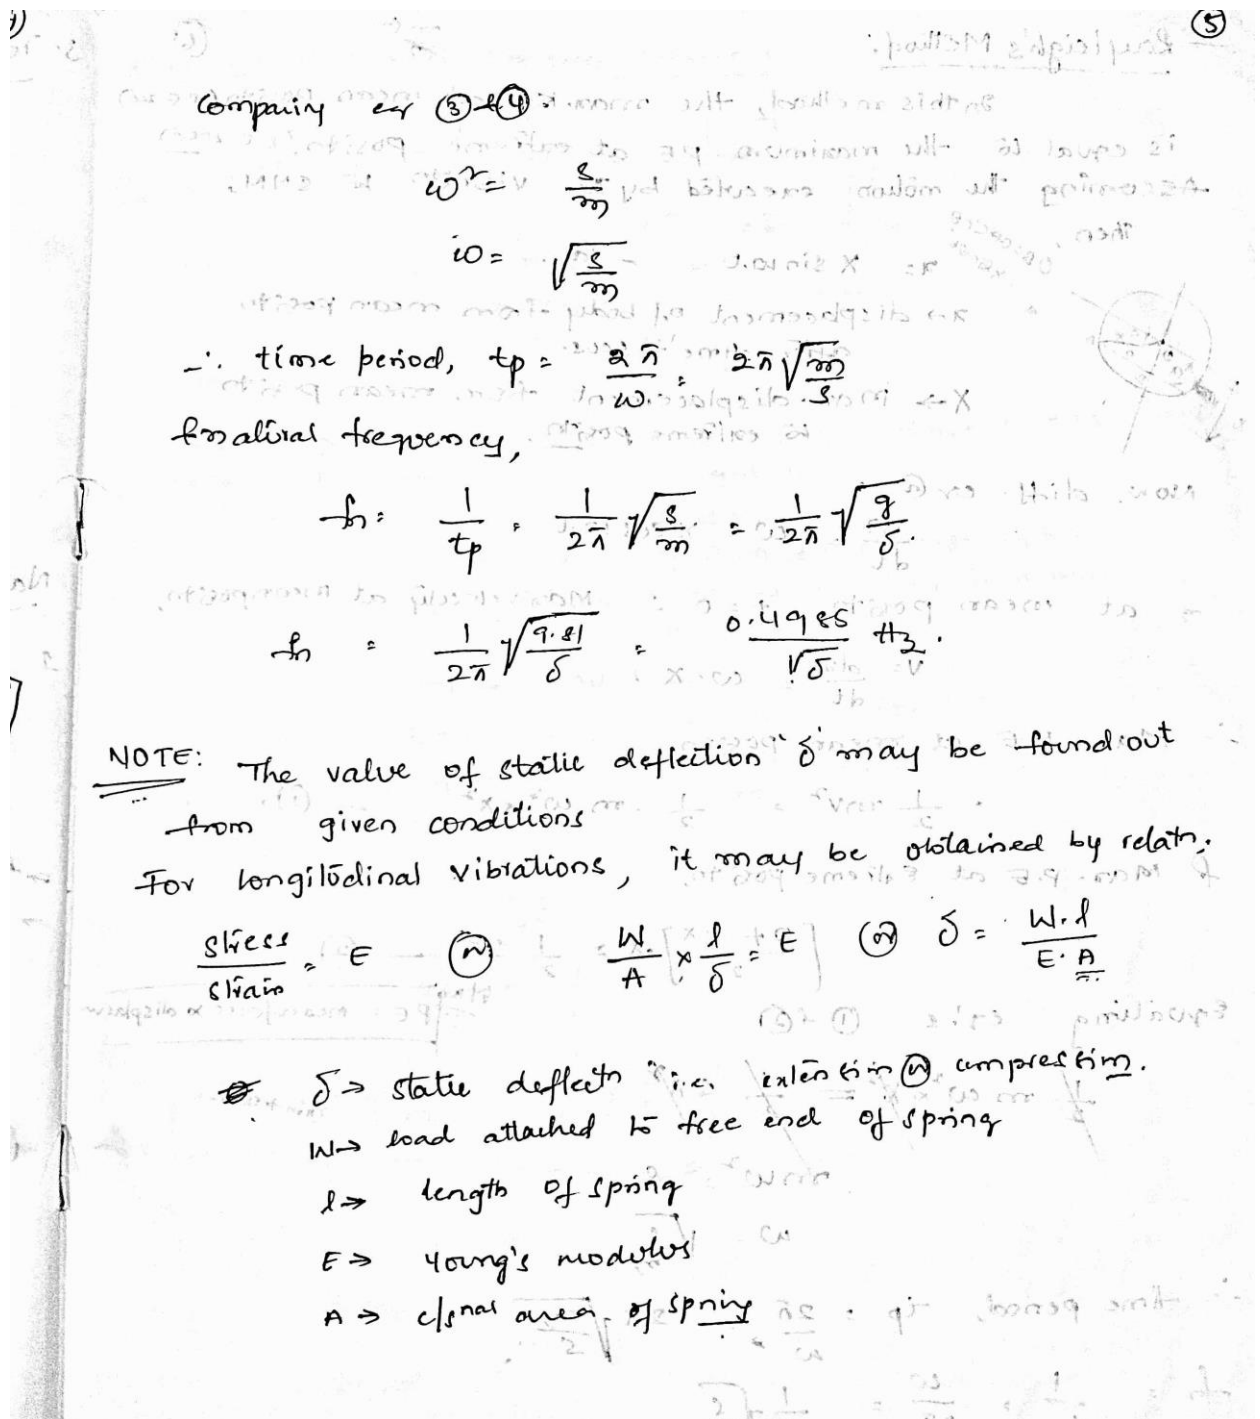 5
Comparing eqn ③ & ④
ω² = s/m
ω = √(s/m)
∴ time period, tp = 2π/ω = 2π√(m/s)
& natural frequency,
fn = 1/tp = 1/2π √(s/m) = 1/2π √(g/δ).
fn = 1/2π √(9.81/δ) = 0.4985/√δ Hz.
NOTE: The value of static deflection 'δ' may be found out
from given conditions
For longitudinal vibrations, it may be obtained by relatn.
stress/strain = E or W/A × l/δ = E or δ = W.l/E.A
δ → static deflectn i.e. extension or compression.
W → load attached to free end of spring
l → length of spring
E → Young's modulus
A → c/snal area of spring